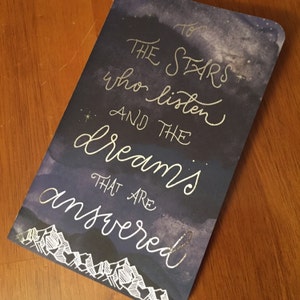 TO
THE STARS
who listen
AND THE
dreams
THAT ARE
answered